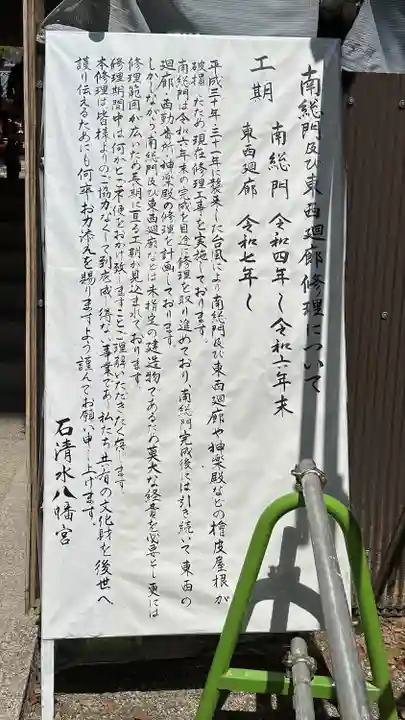 南総門及び東西廻廊修理について
工期　南総門　令和四年〜令和六年末
東西廻廊　令和七年〜
平成三十年、三十一年に襲来した台風により南総門及び東西廻廊や神楽殿などの檜皮屋根が
破損したため、現在修理工事を実施しております。
南総門は令和六年末の完成を目途に修理を取り進めており、南総門完成後には引き続いて、東西の
廻廊、西勤番所、神楽殿の修理を計画しております。
しかしながら、南総門及び東西廻廊などは未指定の建造物であるため莫大な経費を必要とし、更には
修理範囲が広いため長期に亘る工期が見込まれております。
修理期間中は何かとご不便をおかけ致しますことご理解いただきたく存じます。
本修理は皆様よりのご協力なくして到底成し得ない事業であり、私たち共有の文化財を後世へ
護り伝えるためにも何卒お力添えを賜りますよう謹んでお願い申し上げます。
石清水八幡宮